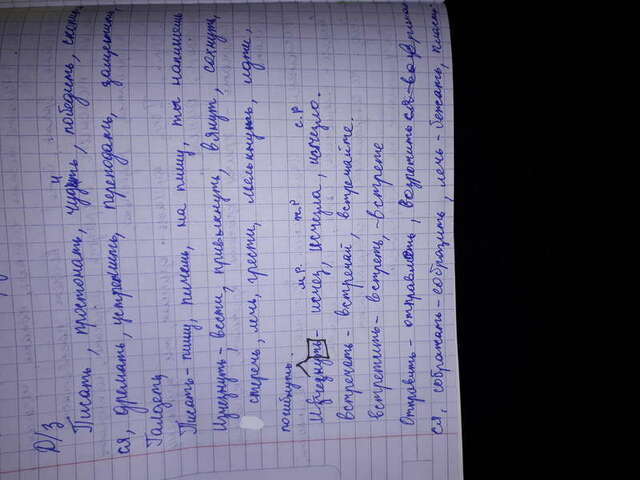 Д/З
Писать, простонать, чудить, победить,
ся, дремать, устроить, переподать,
Галдеть
Писать - пишу, пишешь, на пишу, ты напишешь
Исчезнуть - вести, привыкнуть, вянут, сохнут,
стеречь, лечь, грести, мелькнуть, идти,
погибнуть. м.р. ж.р с.р
Исчезнуть - исчез, исчезла, исчезло.
встречать - встречай, встречайте.
встретить - встреть, - встретте
Отправить - отправлять, возразить
ся, сображать - собразить, лечь - бежать, класть